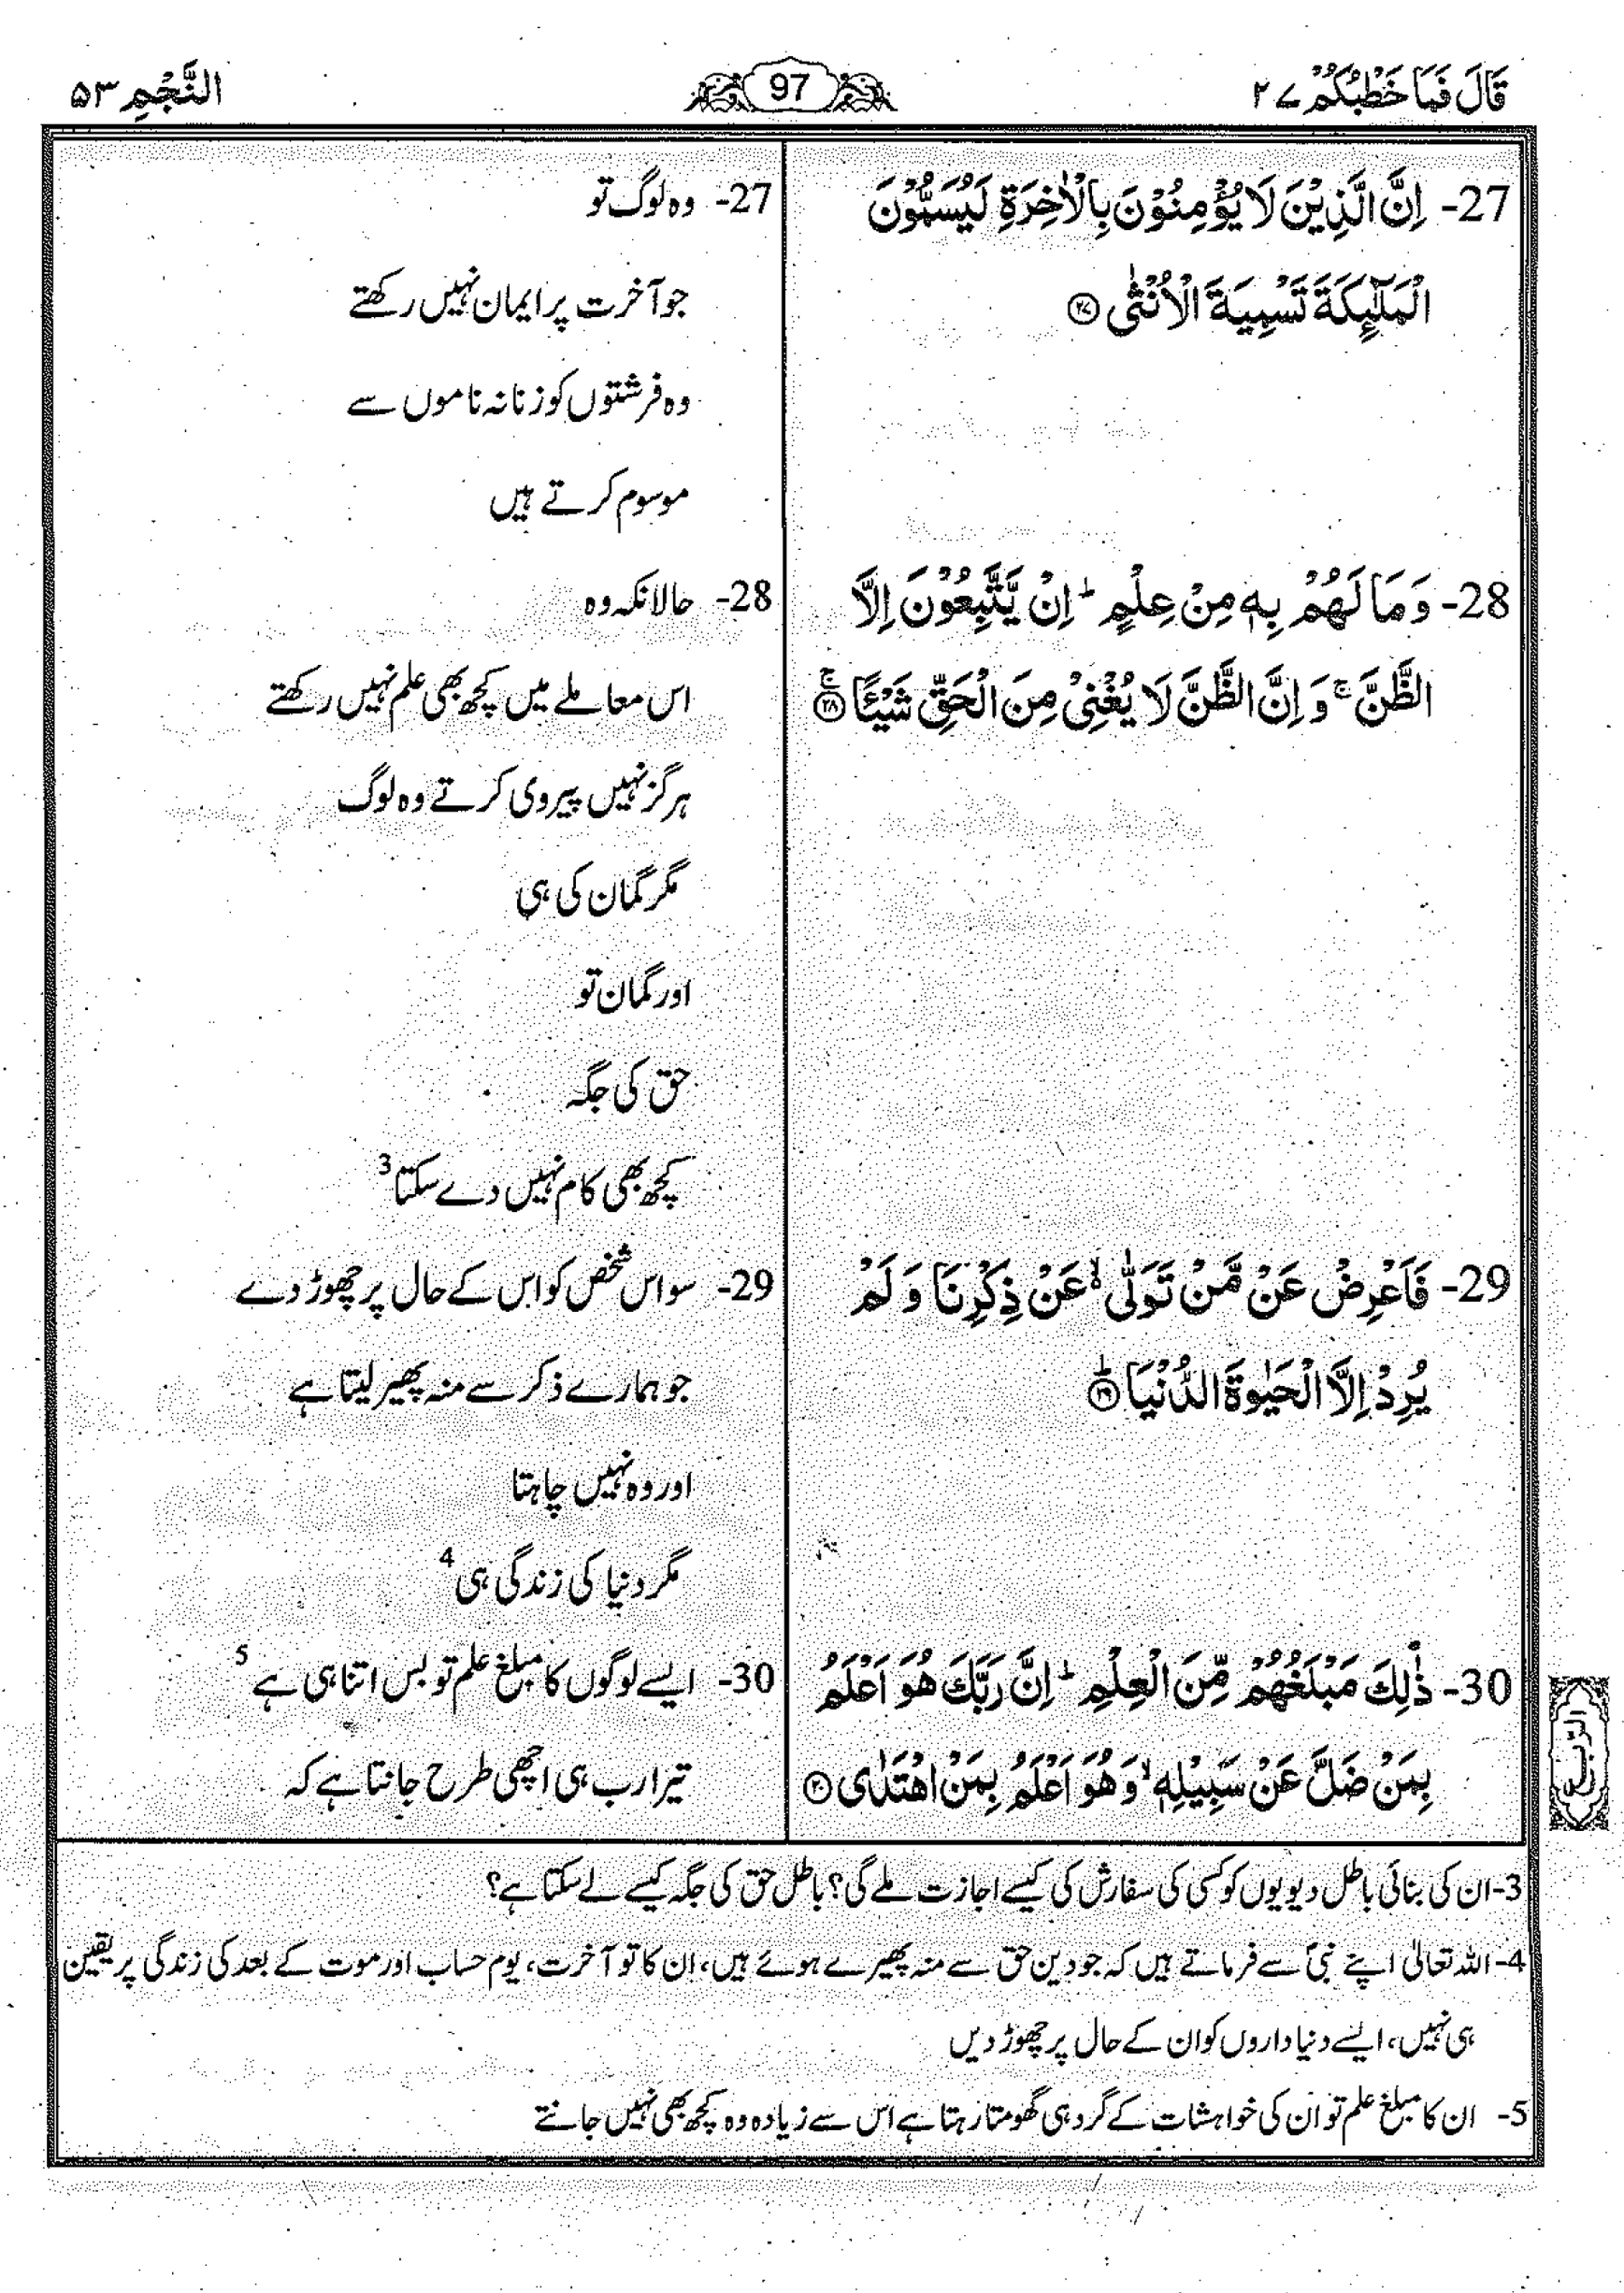 قَالَ فَمَا خَطْبُكُمْ ۲۷
97
النَّجْمِ ۵۳
27- اِنَّ الَّذِيْنَ لَا يُؤْمِنُوْنَ بِالْاٰخِرَةِ لَيُسَمُّوْنَ
الْمَلٰٓئِكَةَ تَسْمِيَةَ الْاُنْثٰى ۲۷
27- وہ لوگ تو
جو آخرت پر ایمان نہیں رکھتے
وہ فرشتوں کو زنانہ ناموں سے
موسوم کرتے ہیں
28- وَمَا لَهُمْ بِهٖ مِنْ عِلْمٍ ؕ اِنْ يَّتَّبِعُوْنَ اِلَّا
الظَّنَّ ۚ وَ اِنَّ الظَّنَّ لَا يُغْنِيْ مِنَ الْحَقِّ شَيْـًٔا ۚ ۲۸
28- حالانکہ وہ
اس معاملے میں کچھ بھی علم نہیں رکھتے
ہرگز نہیں پیروی کرتے وہ لوگ
مگر گمان کی ہی
اور گمان تو
حق کی جگہ
کچھ بھی کام نہیں دے سکتا 3
29- فَاَعْرِضْ عَنْ مَّنْ تَوَلّٰى ۙ۬ عَنْ ذِكْرِنَا وَ لَمْ
يُرِدْ اِلَّا الْحَيٰوةَ الدُّنْيَا ؕ ۲۹
29- سو اس شخص کو اس کے حال پر چھوڑ دے
جو ہمارے ذکر سے منہ پھیر لیتا ہے
اور وہ نہیں چاہتا
مگر دنیا کی زندگی ہی 4
30- ذٰلِكَ مَبْلَغُهُمْ مِّنَ الْعِلْمِ ؕ اِنَّ رَبَّكَ هُوَ اَعْلَمُ
بِمَنْ ضَلَّ عَنْ سَبِيْلِهٖ ۙ وَهُوَ اَعْلَمُ بِمَنِ اهْتَدٰى ۳۰
30- ایسے لوگوں کا مبلغ علم تو بس اتنا ہی ہے 5
تیرا رب ہی اچھی طرح جانتا ہے کہ
3- ان کی بنائی باطل دیویوں کو کسی کی سفارش کی کیسے اجازت ملے گی؟ باطل حق کی جگہ کیسے لے سکتا ہے؟
4- اللہ تعالیٰ اپنے نبیؐ سے فرماتے ہیں کہ جو دین حق سے منہ پھیرے ہوئے ہیں، ان کا تو آخرت، یوم حساب اور موت کے بعد کی زندگی پر یقین
ہی نہیں، ایسے دنیاداروں کو ان کے حال پر چھوڑ دیں
5- ان کا مبلغ علم تو ان کی خواہشات کے گرد ہی گھومتا رہتا ہے اس سے زیادہ وہ کچھ بھی نہیں جانتے